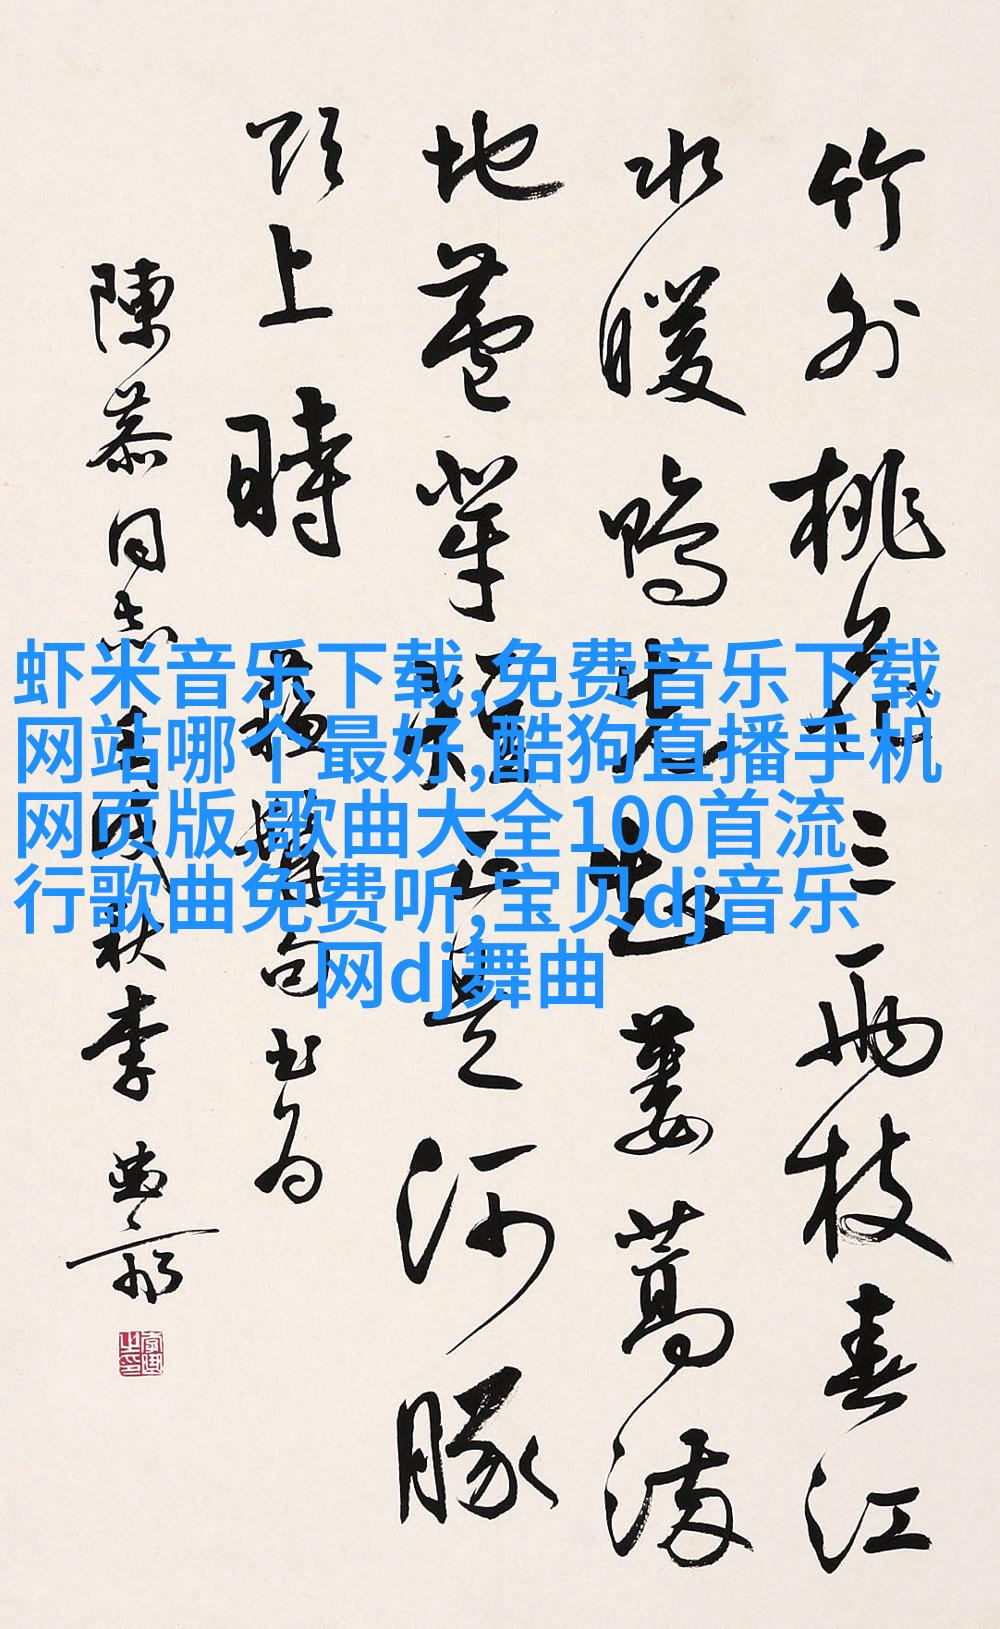 竹外桃花三兩枝春江
水暖鴨先知蔞蒿滿
地蘆芽短正是河豚
欲上時 蘇軾句书为
陳慕同志 秋李
虾米音乐下载,免费音乐下载
网站哪个最好,酷狗直播手机
网页版,歌曲大全100首流
行歌曲免费听,宝贝dj音乐
网dj舞曲